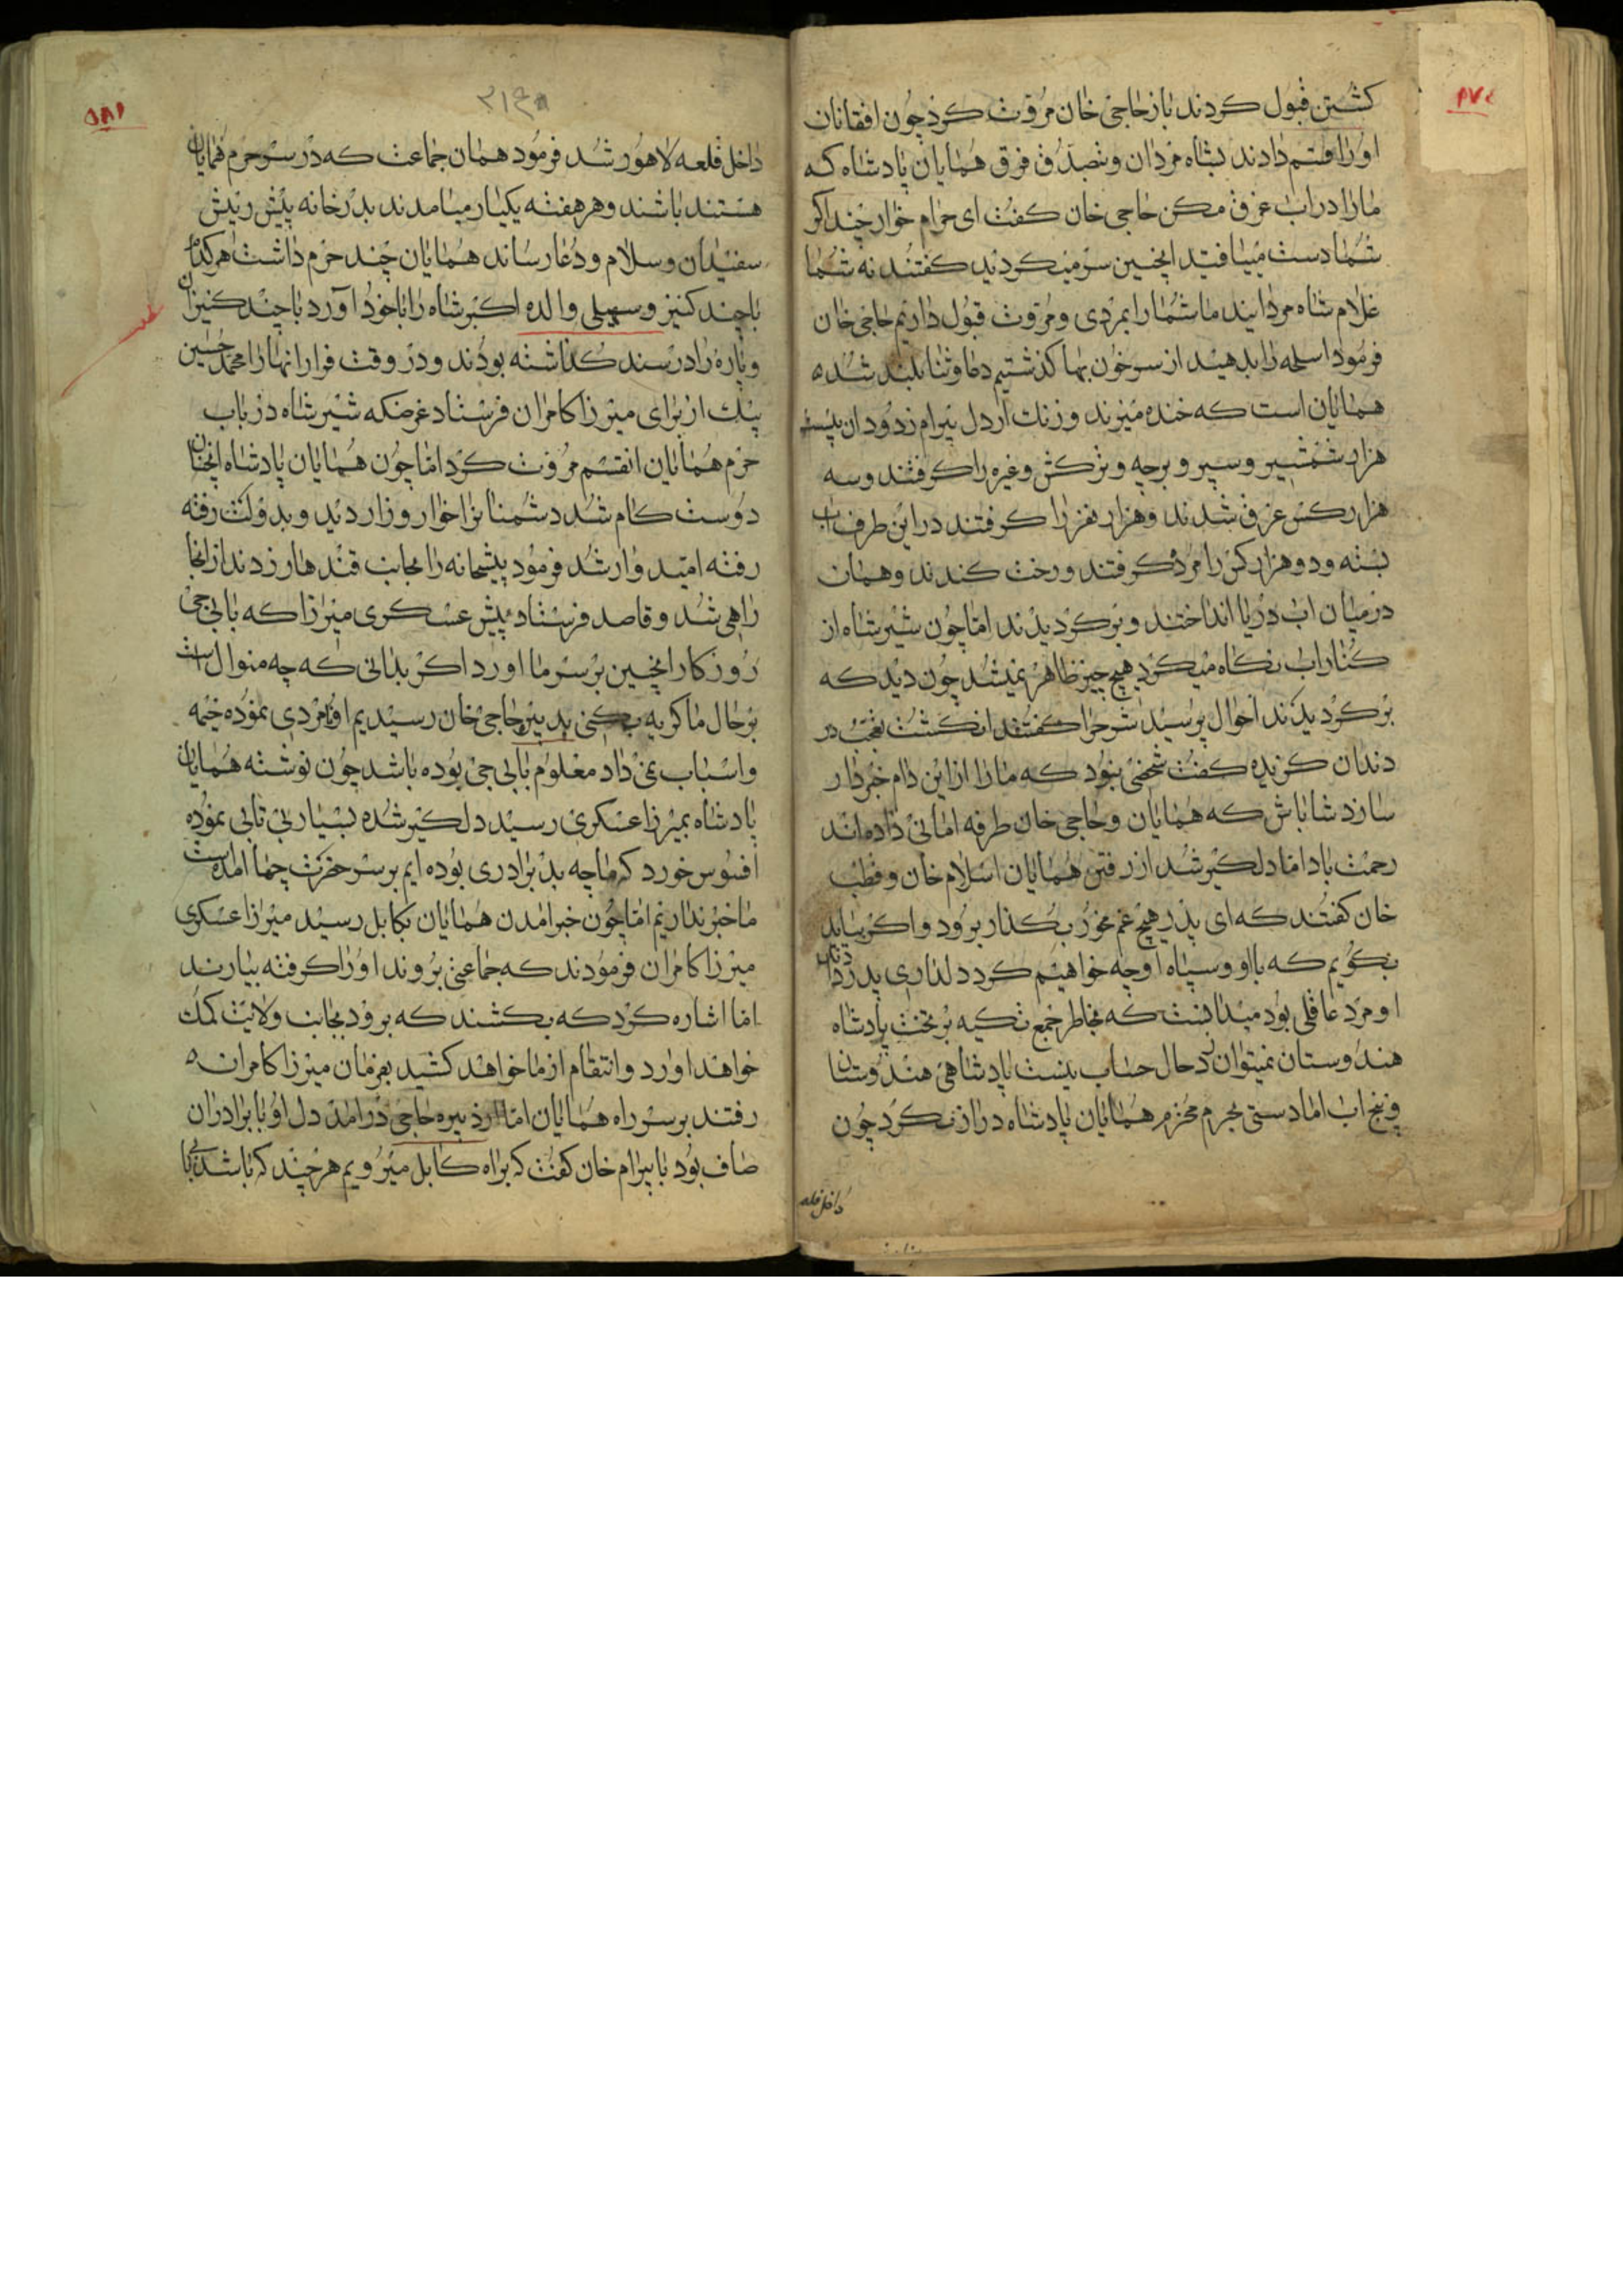 کشتن قبول کردند باز حاجی خان مروت کرد چون افقانان
او را قسم دادند بشاه مردان و بتصدق فرق همایان پادشاه که
مارا در اب غرق مکن حاجی خان کفت ای حرام خوار چند اکر
شما دست میافتید اینچنین سر میکردید کفتند نه شما
غلام شاه مردانید ما شما را بمردی و مروت قبول داریم حاجی خان
فرمود اسلحه را بدهید از سر خون بها کذشتیم دعا و ثنا بلند شده
همایان است که خنده میزند و زنك از دل بیرام زدود ان بیست
هزار شمشیر و سپر و برچه و ترکش و غیره را کرفتند و سه
هزار کس غرق شدند و هزار نفر را کرفتند در این طرف اب
بسته و دو هزار کس را مرد کرفتند و رخت کندند و همان
در میان اب دریا انداختند و برکردیدند اما چون شیر شاه از
کنار اب نکاه میکرد هیچ چیز ظاهر نمیشد چون دید که
برکردیدند احوال پرسید شرح را کفتند انکشت تعجب در
دندان کزیده کفت شخصی نبود که ما را از این دام خبردار
سازد شاباش که همایان و حاجی خان طرفه امانی داده‌اند
رحمت باد اما دلکیر شد از رفتن همایان اسلام خان و قطب
خان کفتند که ای پدر هیچ غم مخور بکذار برود و اکر بیاید
بکویم که با او و سپاه او چه خواهیم کرد دلداری پدر دادند
او مرد عاقلی بود میدانست که بخاطر جمع تکیه بر تخت پادشاه
هندوستان نمیتوان زد حال حساب نیست پادشاهی هندوستان
و پنج اب اما دستی بحرم محترم همایان پادشاه دراز نکرد چون
داخل قلعه
داخل قلعه لاهور شد فرمود همان جماعت که در سر حرم همایان
هستند باشند و هر هفته یکبار میامدند بدرخانه پیش ریش
سفیدان و سلام و دعا رساند همایان چند حرم داشت هر کدام
با چند کنیز و سهیلی والده اکبر شاه را با خود آورد با چند کنیزان
و پاره را در سند کذاشته بودند و در وقت فرار انها را محمد حسین
بیك از برای میرزا کامران فرستاد غرضکه شیر شاه در باب
حرم همایان انقسم مروت کرد اما چون همایان پادشاه انچنان
دوست کام شد دشمنانرا خوار و زار دید و بدولت رفته
رفته امیدوار شد فرمود پیشخانه را بجانب قندهار زدند از انجا
راهی شد و قاصد فرستاد پیش عسکری میرزا که بابی جی
روزکار اینچنین بر سر ما اورد اکر بدانی که چه منوال است
بر حال ما کریه بکنی بدبیره حاجی خان رسیدیم او نامردی نموده خیمه
و اسباب نمیداد معلوم بابی جی بوده باشد چون نوشته همایان
پادشاه بمیرزا عسکری رسید دلکیر شده بسیار بی تابی نموده
افسوس خورد که ما چه بد برادری بوده ایم بر سر حضرت چها امده است
ما خبر نداریم اما چون خبر امدن همایان بکابل رسید میرزا عسکری
میرزا کامران فرمودند که جماعتی بروند او را کرفته بیارند
اما اشاره کرد که بکشند که برود بجانب ولایت کمك
خواهد اورد و انتقام از ما خواهد کشید بفرمان میرزا کامران
رفتند بر سر راه همایان اما از دبیره حاجی درامد دل او با برادران
صاف بود با بیرام خان کفت که براه کابل میرویم هر چند که باشد بی با